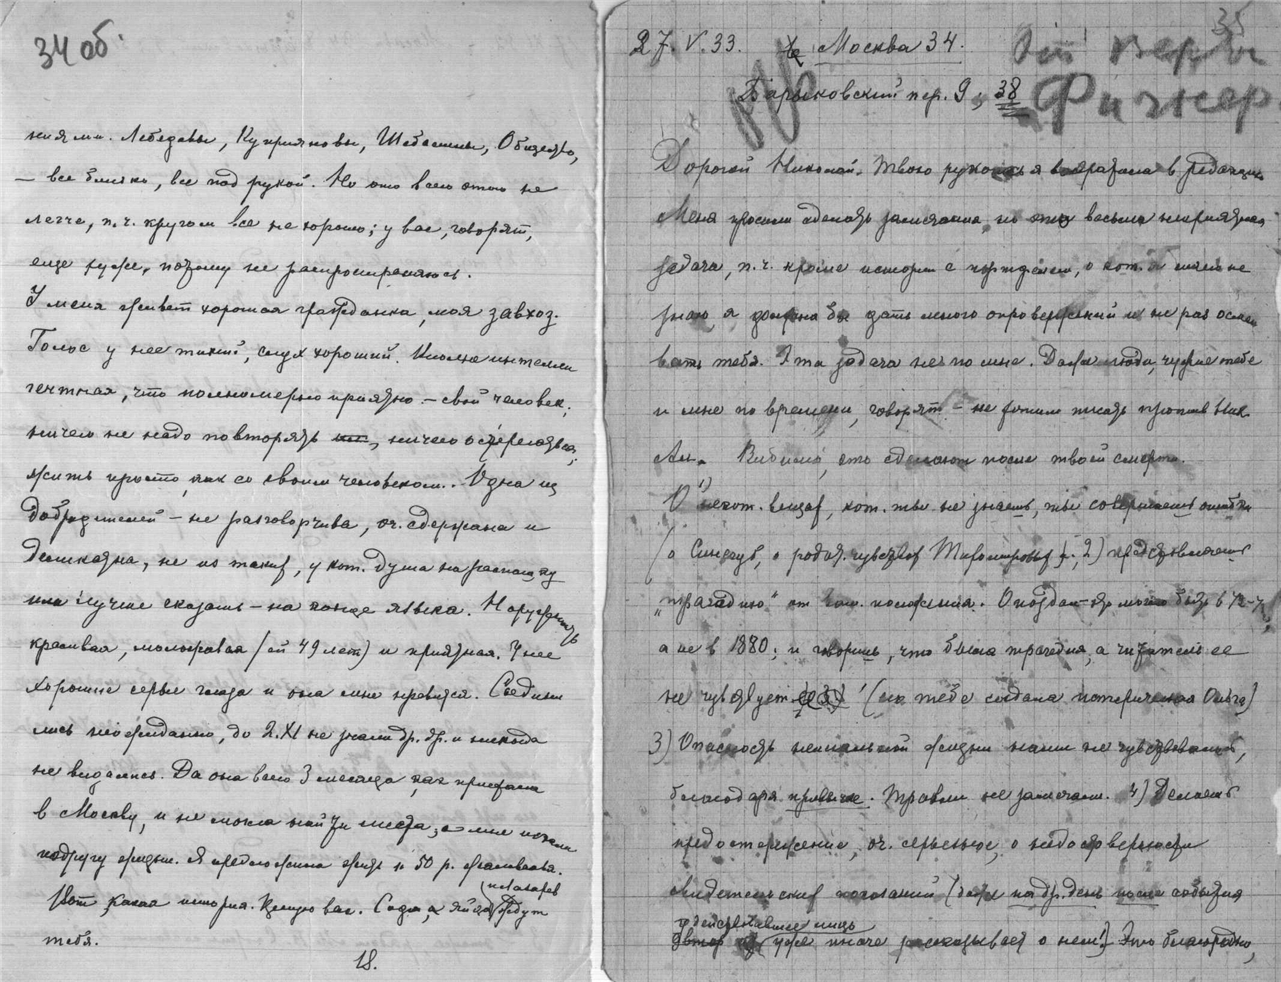 34 об.
ниями. Лебедевы, Куприяновы, Шебалины, Общество,
— все близко, все под рукой. Но ото всего этого не
легче, п.ч. кругом все не хорошо; у вас, говорят,
еще хуже, потому не распространяюсь.
У меня живет хорошая гражданка, моя завхоз.
Голос у нее тихий, слух хороший. Вполне интелли
гентная, что полномерно приятно — свой человек;
ничего не надо повторять, ничего остерегаться;
жить просто, как со своим человеком. Одна из
добродетелей — не разговорчива, оч. сдержана и
деликатна, не из таких, у кот. душа нараспашку
или лучше сказать — на конце языка. Наружность
красивая, моложавая (ей 49 лет) и приятная. У нее
хорошие серые глаза и она мне нравится. Соедини
лись неожиданно, до 2.XI не знали др. др. и никогда
не видались. Да она всего 3 месяца, как приехала
в Москву, и не могла найти места, а мне искали
подругу жизни. Я предложила жить и 50 р. жалованья.
Вот какая история. Целую вас. Сода, а яйца будут
тебя.
18.
35
27.V.33. Москва 34.
От Веры
Барыковский пер. 9, 38
Фигнер
Дорогой Николай. Твою рукопись я возвратила в редакцию.
Меня просили сделать замечания, но это весьма неприятная
задача, п.ч. кроме истории с, о кот. я не
знаю, я должна бы дать много опровержений и не раз
тебя. Эта задача не по мне. Даже люди, чужие тебе
и мне по времени, говорят — не хотим писать против Ник.
Ал. Видимо, это сделают после твоей смерти.
О 1) некот. вещах, кот. ты не знаешь, ты совершаешь ошибки
(о Синегубе, о родств. чувствах Тихомировых); 2) представляешь
"трагедию" от положения. Опоздан. могло быть в
а не в 1880; и говоришь, что была трагедия, а читатель ее
не чувствует (его тебе создала истеричная Ольга)
3) Опасность нелегальной жизни нами не чувствовалась,
благодаря привычке. Травли не замечали. 4) Делаешь
предостережение, оч. серьезное, о недостоверности
свидетельских показаний (даже на др. день после события
действовавшее лицо
уже иначе рассказывает о нем!). Это благородно,